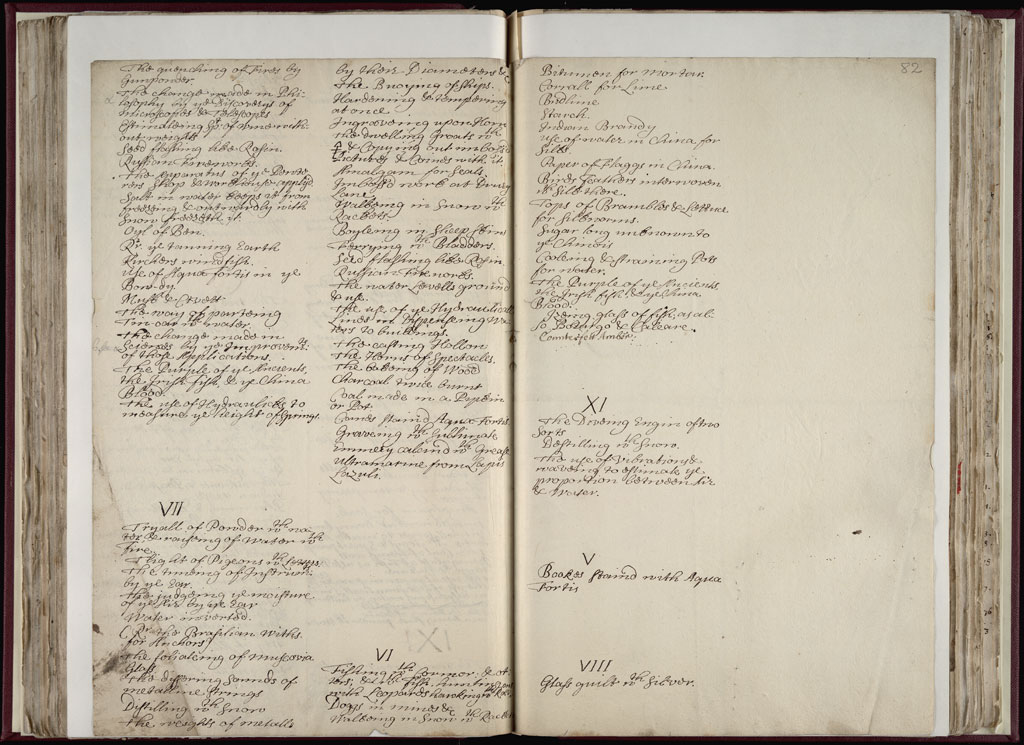 The quenching of Fires by
Gunpowder.
The change made in Phi-
losophy by ye Discoverys of
microscopes & Telescopes
Estimateing of without
out weights
Seed flashing like Rosin.
Russian Fireworks.
The Apparatus of ye
Shop & workhouse
Salt in water keeps it from
freezing & outwardly with
Snow freezeth it.
Oyl of Ben.
Qr. ye tanning Earth
Kirchers windfish.
Use of Aqua fortis in ye
Bow-dy.
Musk & Civett
The way of parting
Tin oar wth water.
The change made in
Sciences by ye Improvemt.
of those Applications.
The Purple of ye Ancients,
the Irish fish, & ye China
Blood.
The use of Hydraulicks to
measure ye Height of Springs.
VII
Tryall of Powder wth wa-
ter & raising of Water wth
Fire.
Flight of Pigeons wth
The tuneing of Instrum:
by ye Ear.
the judgeing ye moisture
of ye Air by ye Ear
Water inverted.
(Qr. the Brasilian Withs
for Anchors)
The foliateing of Muscovia
Glass
The differing Sounds of
metalline Strings
Distilling wth Snow
The weights of metalls
by their Diameters &
The Buoying of Ships.
Hardening & tempering
at once.
Ingraveing upon Horn
the dwelling Groats wth
☿ & Copying out imboss'd
Pictures & Coines with it
Amalgam for Seals.
Imboss'd work at Drury
Lane.
Walking in Snow wth
Rackets.
Boyleing in Sheep skin
Ferrying wth Bladders.
Seed flashing like Rosin
Russian Fireworks.
The water Levells ground
& use.
The use of ye Hydraulick
lines in dispenseing Wa-
ters to buildings.
The casting Hollow
The Hornes of Spectacles.
The bakeing of Wood
Charcoal twice burnt
Coal made in a Pipkin
or Pot.
Canes staind Aqua Fortis
Graveing wth Sublimate
Emmery calcind wth Grease
Ultramarine from Lapis
Lazuli.
VI
Fishing wth Cormor: & ot-
ters, & with fish, hunting
with Leopards hawking wth
Dogs in mines &c
Walking in Snow wth Racket
82
Bitumen for mortar.
Corrall for Lime
Birdlime
Starch.
Indian Brandy
Use of water in China for
Silks.
Paper of Flaggs in China.
Birds Feathers interwoven
wth Silk there.
Tops of Brambles & Lettuce
for Silkworms.
Sugar long unknown to
ye Chinois
Cooleing & straining Pots
for water.
The Purple of ye Ancients,
the Irish fish, & ye China
Blood.
Iseing glass of fish as al-
so Botargo & Caveare.
Counterfeit Amber.
XI
The Diveing Engin of two
sorts
Distilling wth Snow.
The use of Vibrations &
waveing to estimate ye
proportion between Air
& Water.
V
Bookes staind with Aqua
Fortis
VIII
Glass guilt wth Silver.